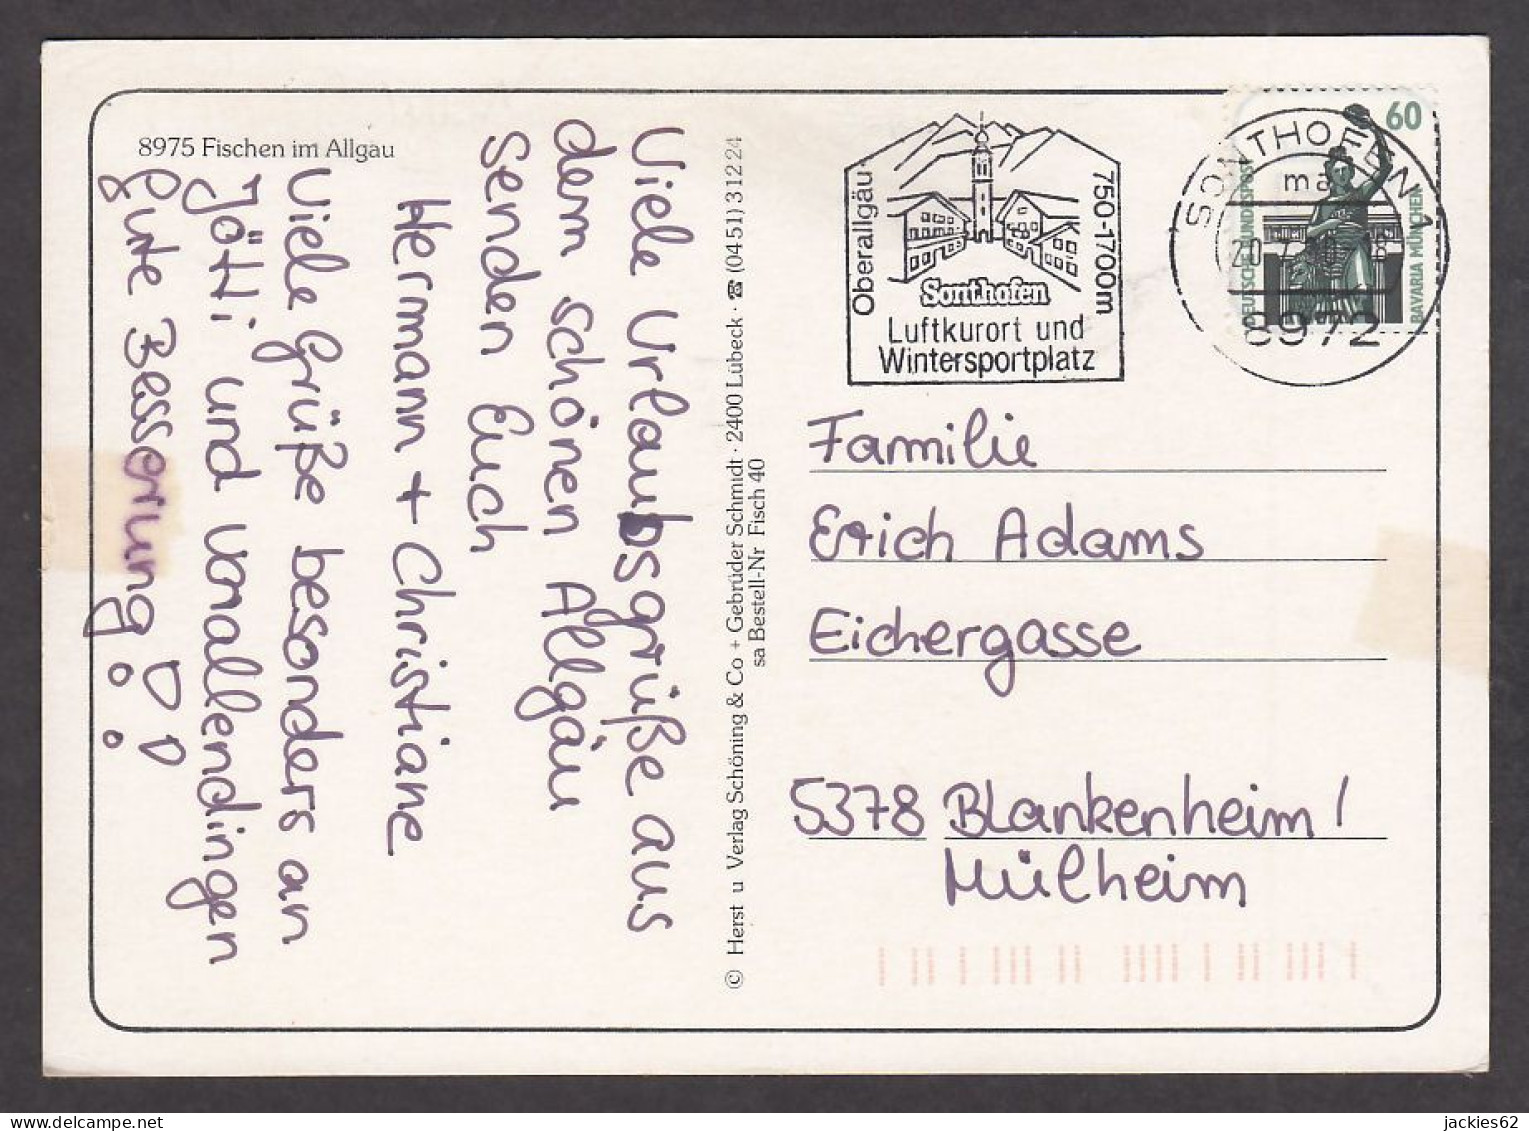 8975 Fischen im Allgäu
Viele Urlaubsgrüße aus
dem schönen Allgäu
senden Euch
Hermann + Christiane
Viele Grüße besonders an
Jötti und vorallendingen
gute Besserung!!
© Herst u Verlag Schöning & Co + Gebrüder Schmidt · 2400 Lübeck · ☎ (04 51) 3 12 24
sa Bestell-Nr Fisch 40
Oberallgäu
750-1700m
Sonthofen
Luftkurort und
Wintersportplatz
SONTHOFEN
ma
8972
60
DEUTSCHE BUNDESPOST
BAVARIA MÜNCHEN
Familie
Erich Adams
Eichergasse
5378 Blankenheim /
Mülheim
jackies62